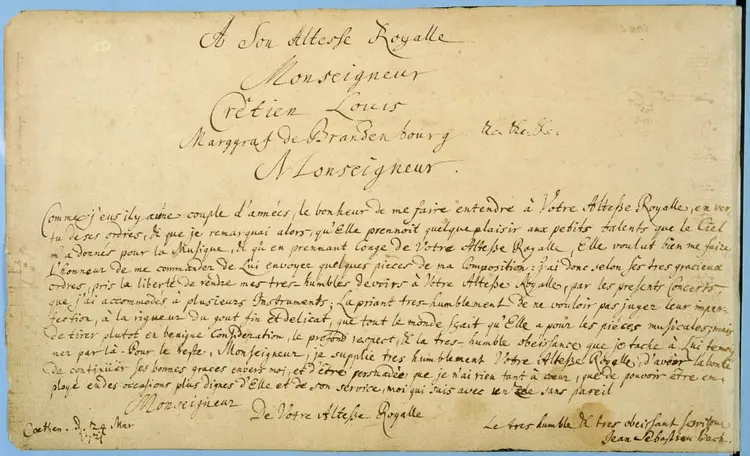 A Son Altesse Royalle
Monseigneur
Crêtien Louis
Marggraf de Brandenbourg &c. &c. &c.
Monseigneur.
Comme j'eus il y a une couple d'années, le bonheur de me faire entendre à Votre Altesse Royalle, en ver
tu de ses ordres, & que je remarquai alors, qu'Elle prennoit quelque plaisir aux petits talents que le Ciel
m'a donnés pour la Musique, & qu'en prennant Conge de Votre Altesse Royalle, Elle voulut bien me faire
l'honneur de me commander de Lui envoyer quelques pieces de ma Composition: j'ai donc selon ses tres gracieux
ordres, pris la liberté de rendre mes tres-humbles devoirs à Votre Altesse Royalle, par les presents Concerts,
que j'ai accommodés à plusieurs Instruments; La priant tres-humblement de ne vouloir pas juger leur imper
fection, à la rigueur du gout fin et delicat, que tout le monde sçait qu'Elle a pour les pièces musicales; mais
de tirer plutot en benigne Consideration, le profond respect, & la tres-humble obeissance que je tache à Lui temoig
ner par là. Pour le reste, Monseigneur, je supplie tres humblement Votre Altesse Royalle, d'avoir la bonté
de continüer ses bonnes graces envers moi, et d'être persuadèe que je n'ai rien tant à cœur, que de pouvoir être em
ployé en des occasions plus dignes d'Elle et de son service, moi qui suis avec un zele sans pareil
Monseigneur
De Votre Altesse Royalle
Coethen. d. 24 Mar
1721
Le tres humble & tres obeissant serviteur
Jean Sebastien Bach.